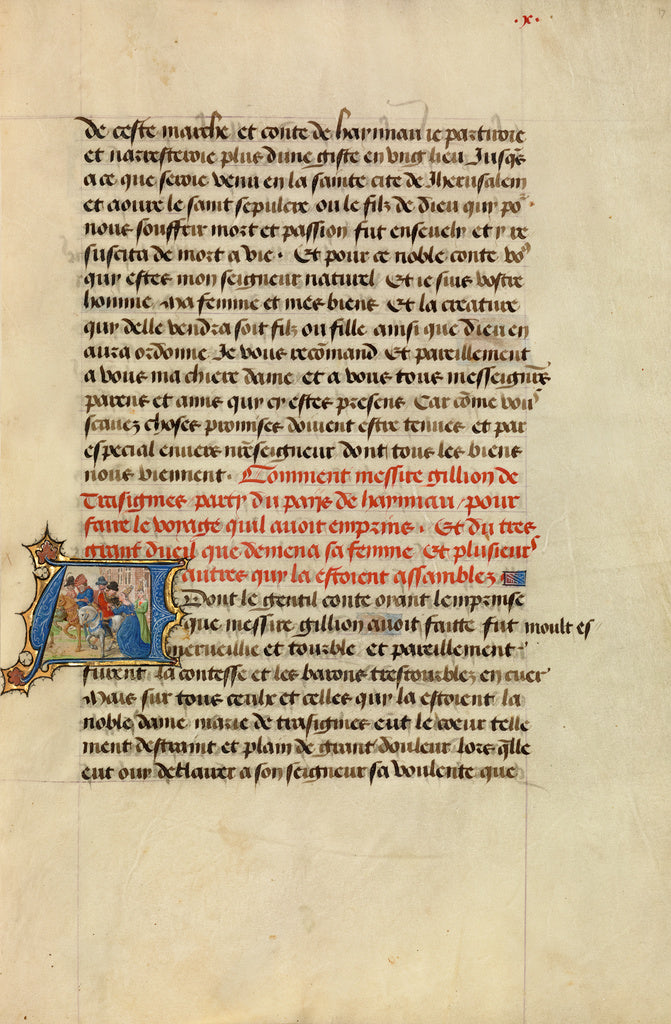 ·x·
de ceste marche et conte de haynnau ie partiroie
et narresteroie plus dune giste en vng lieu Jusqs
a ce que seroie venu en la sainte cite de Jherusalem
et aoure le saint sepulcre ou le filz de dieu quy po
nous souffrir mort et passion fut ensevely et y re
suscita de mort a vie · Et pour ce noble conte vo9
quy estes mon seigneur naturel Et ie suis vostre
homme Ma femme et mes biens Et la creature
quy delle vendra soit filz ou fille ainsi que dieu en
aura ordonne Je vous recomand Et pareillement
a vous ma chiere dame et a vous tous messeigneurs
parens et amis quy cy estes presens Car come vous
scauez choses promises doiuent estre tenues et par
especial enuers nreseigneur dont tous les biens
nous viennent · Comment messire gillion de
Trasignies party du pays de haynnau / pour
faire le voyage quil auoit emprins · Et du tres
grant dueil que demena sa femme Et plusieurs
autres quy la estoient assamblez
A Dont le gentil conte oyant lemprinse
que messire gillion auoit faitte fut moult es
merueillie et tourble et pareillement
furent la contesse et les barons trestourblez en cuer
Mais sur tous ceulx et celles quy la estoient la
noble dame marie de trasignies eut le coeur telle
ment destraint et plain de grant douleur lors qlle
eut ouy desclairer a son seigneur sa voulente que